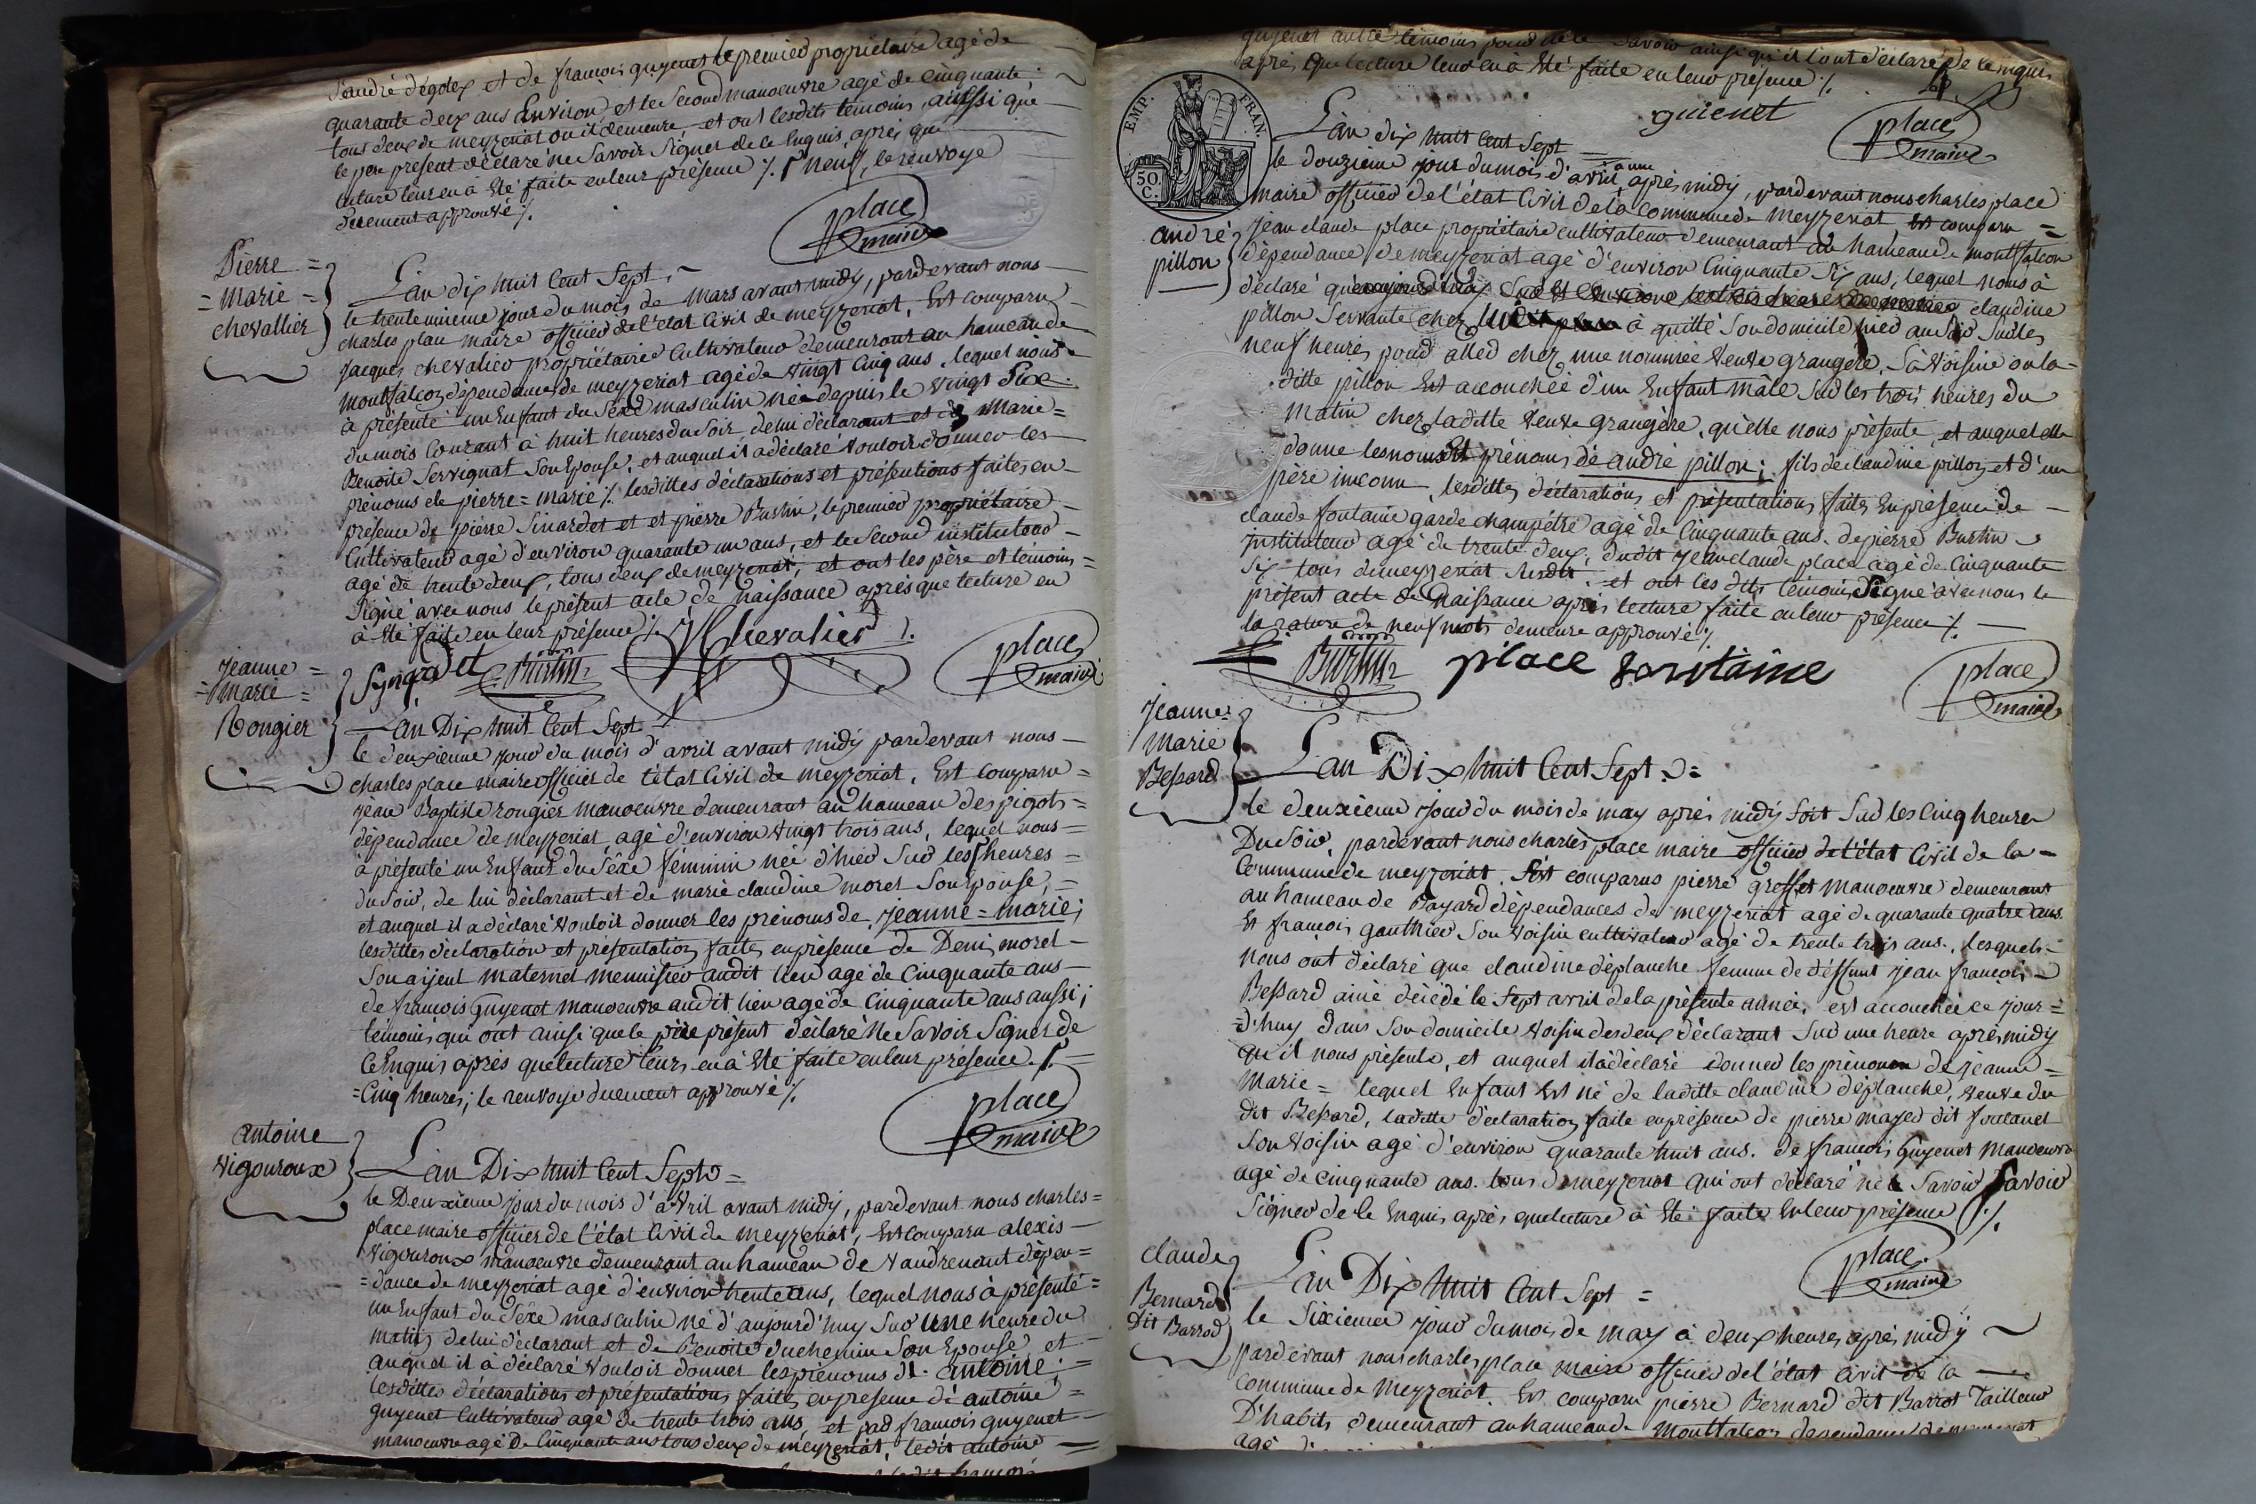 d'andré dégoley et de francois guyenet le premier propriétaire agé de
quarante deux ans Environ, et le Second manoeuvre agé de Cinquante,
tous deux de meyzeriat ou il demeure, et ont lesdits temoins, aussi que
le pere présent déclaré ne Savoir Signer de le Enquis, après que
lecture leur en à été faite en leur présence ./. neuf, le renvoye
duement approuvé ./.
place
maire
Pierre =
= Marie =
chevallier
L'an dix huit Cent Sept,
le trente unieme jour du mois de mars avant midy, pardevant nous
charles place maire officier de l'état Civil de meyzeriat, Est comparu
Jacques chevalier propriétaire Cultivateur demeurant au hameau de
montfalcon dépendance de meyzeriat agé de vingt Cinq ans, lequel nous
à présenté un Enfant du Sexe masculin née depuis le vingt Six
du mois Courant à huit heures du Soir de lui déclarant et de Marie =
Benoite Servignat Son Epouse, et auquel il a déclaré vouloir donner les
prénoms de pierre = marie ./. lesdittes déclarations et présentations faites en
présence de pierre Sinardet et et pierre Burtin, le premier propriétaire
Cultivateur agé d'environ quarante un ans, et le Second instituteur
agé de trente deux, tous deux de meyzeriat, et ont les père et témoins =
Signé avec nous le présent acte de naissance après que lecture en
à été faite en leur présence ./.
JChevalier
place
maire
Burtin
Jeanne =
= Marie =
Rongier
L'an Dix huit Cent Sept
le deuxienne jour du mois d'avril avant midy pardevant nous
charles place maire officier de l'état Civil de meyzeriat, Est comparu =
Jean Baptiste rongier manoeuvre demeurant au hameau des pigots =
dépendance de meyzeriat, agé d'environ vingt trois ans, lequel nous =
à présenté un Enfant du Séxe féminin née d'hier Sur les heures =
du soir, de lui déclarant et de marie claudine morel Son Epouse, =
et auquel il a déclaré vouloir donner les prénoms de jeanne = marie ;
lesdittes déclaration et présentation faites en présence de Deni morel
Son aïjeul maternel menuisier audit lieu agé de Cinquante ans
de francois Guyenet manoeuvre audit lieu agé de Cinquante ans aussi ;
temoins qui ont ainsi que le père présent déclaré Ne Savoir Signer de
Ce Enquis après que lecture leurs en à été faite en leur présence. /. =
= Cinq heures ; le renvoye duement approuvé ./.
place
maire
antoine
Vigouroux
L'an Dix huit Cent Sept =
le Deuxieme jour du mois d'avril avant midy, pardevant nous charles =
place maire officier de l'état Civil de meyzeriat, Est comparu alexis
Vigouroux manoeuvre demeurant au hameau de Vaudrenant dépen =
= dance de meyzeriat agé d'environ trente ans, lequel nous à présenté =
un Enfant du Séxe masculin né d'aujourd'huy Sur une heure du
matin de lui déclarant et de Benoite duchemin Son Epouse, et
auquel il à déclaré vouloir donner les prénoms de antoine ; =
lesdittes déclarations et présentations faites en présence de antoine =
guyenet Cultivateur agé de trente trois ans, et par francois guyenet
manoeuvre agé De Cinquante ans tous deux de meyzeriat, ledit antoine
guyenet autre témoins pour ne le Savoir ainsi qu'il l'ont déclaré de ce enquis
après que lecture leur en à été faite en leur présence ./.
guienet
place
maire
EMP. FRAN.
50
C.
andré
pillon
L'an dix huit Cent Sept
le douzieme jour du mois d'avril après midy, pardevant nous charles place
maire officier de l'état Civil de la Commune de meyzeriat Est comparu =
jean claude place propriétaire cultivateur demeurant au hameau de montfalcon
dépendance de meyzeriat agé d'environ Cinquante Six ans, lequel nous à
déclaré que claudine
pillon Servante chez lui à quitté Son domicile hier au Soir Sur les
neuf heures pour aller chez une nommée Veuve grangère, Sa Voisine ou la
ditte pillon Est accouchée d'un Enfant mâle Sur les trois heures du
matin chez laditte Veuve grangère, qu'elle nous présente, et auquel elle
donne les noms Et prénoms de andré pillon ; fils de claudine pillon et d'un
père inconnu, lesdittes déclarations et présentations faites En présence de
claude fontaine garde champétre agé de Cinquante ans. de pierre Burtin
Instituteur agé de trente deux ; dudit Jean claude place agé de Cinquante
Six tous de meyzeriat Susdit ; et ont les dits temoins Signé avec nous le
présent acte de Naissance après lecture faite en leur présence ./.
la rature de neuf mots demeure approuvé ./.
Burtin
place
fontaine
place
maire
Jeanne =
Marie
Bessard
L'an Dix huit Cent Sept. =
le deuxieme jour du mois de may après midy Soit Sur les Cinq heures
Du Soir, pardevant nous charles place maire officier de l'état Civil de la =
Commune de meyzeriat. Sont comparus pierre manoeuvre demeurant
au hameau de Bayard dépendances de meyzeriat agé de quarante quatre ans.
Et francois gauthier Son Voisin cultivateur agé de trente trois ans, lesquels
nous ont déclaré que claudine déplanche femme de déffunt jean francois
Bessard ainé décédé le Sept avril de la présente année, est accouchée ce jour =
d'huy dans Son domicile Voisin des deux déclarant Sur une heure après midy
qu'il nous présente, et auquel il a déclaré donner les prénoms de jeanne =
Marie = lequel Enfant Est né de laditte claudine déplanche, veuve du
dit Bessard, laditte déclaration faite en présence de pierre mayer dit
Son voisin agé d'environ quarante huit ans. de francois Guyenet Manoeuvre
agé de Cinquante ans. tous de meyzeriat qui ont déclaré ne Savoir Savoir
Signer de le Enquis après que lecture à été faite En leur présence ./.
place
maire
claude
Bernard
dit Barrod
L'an Dix huit Cent Sept =
le Sixieme jour du mois de may à deux heures après midy
pardevant nous charles place maire officier de l'état Civil de la
commune de Meyzeriat. Est comparu pierre Bernard dit Barrot Tailleur
D'habits demeurant au hameau de Montfalcon dependance de meyzeriat
agé